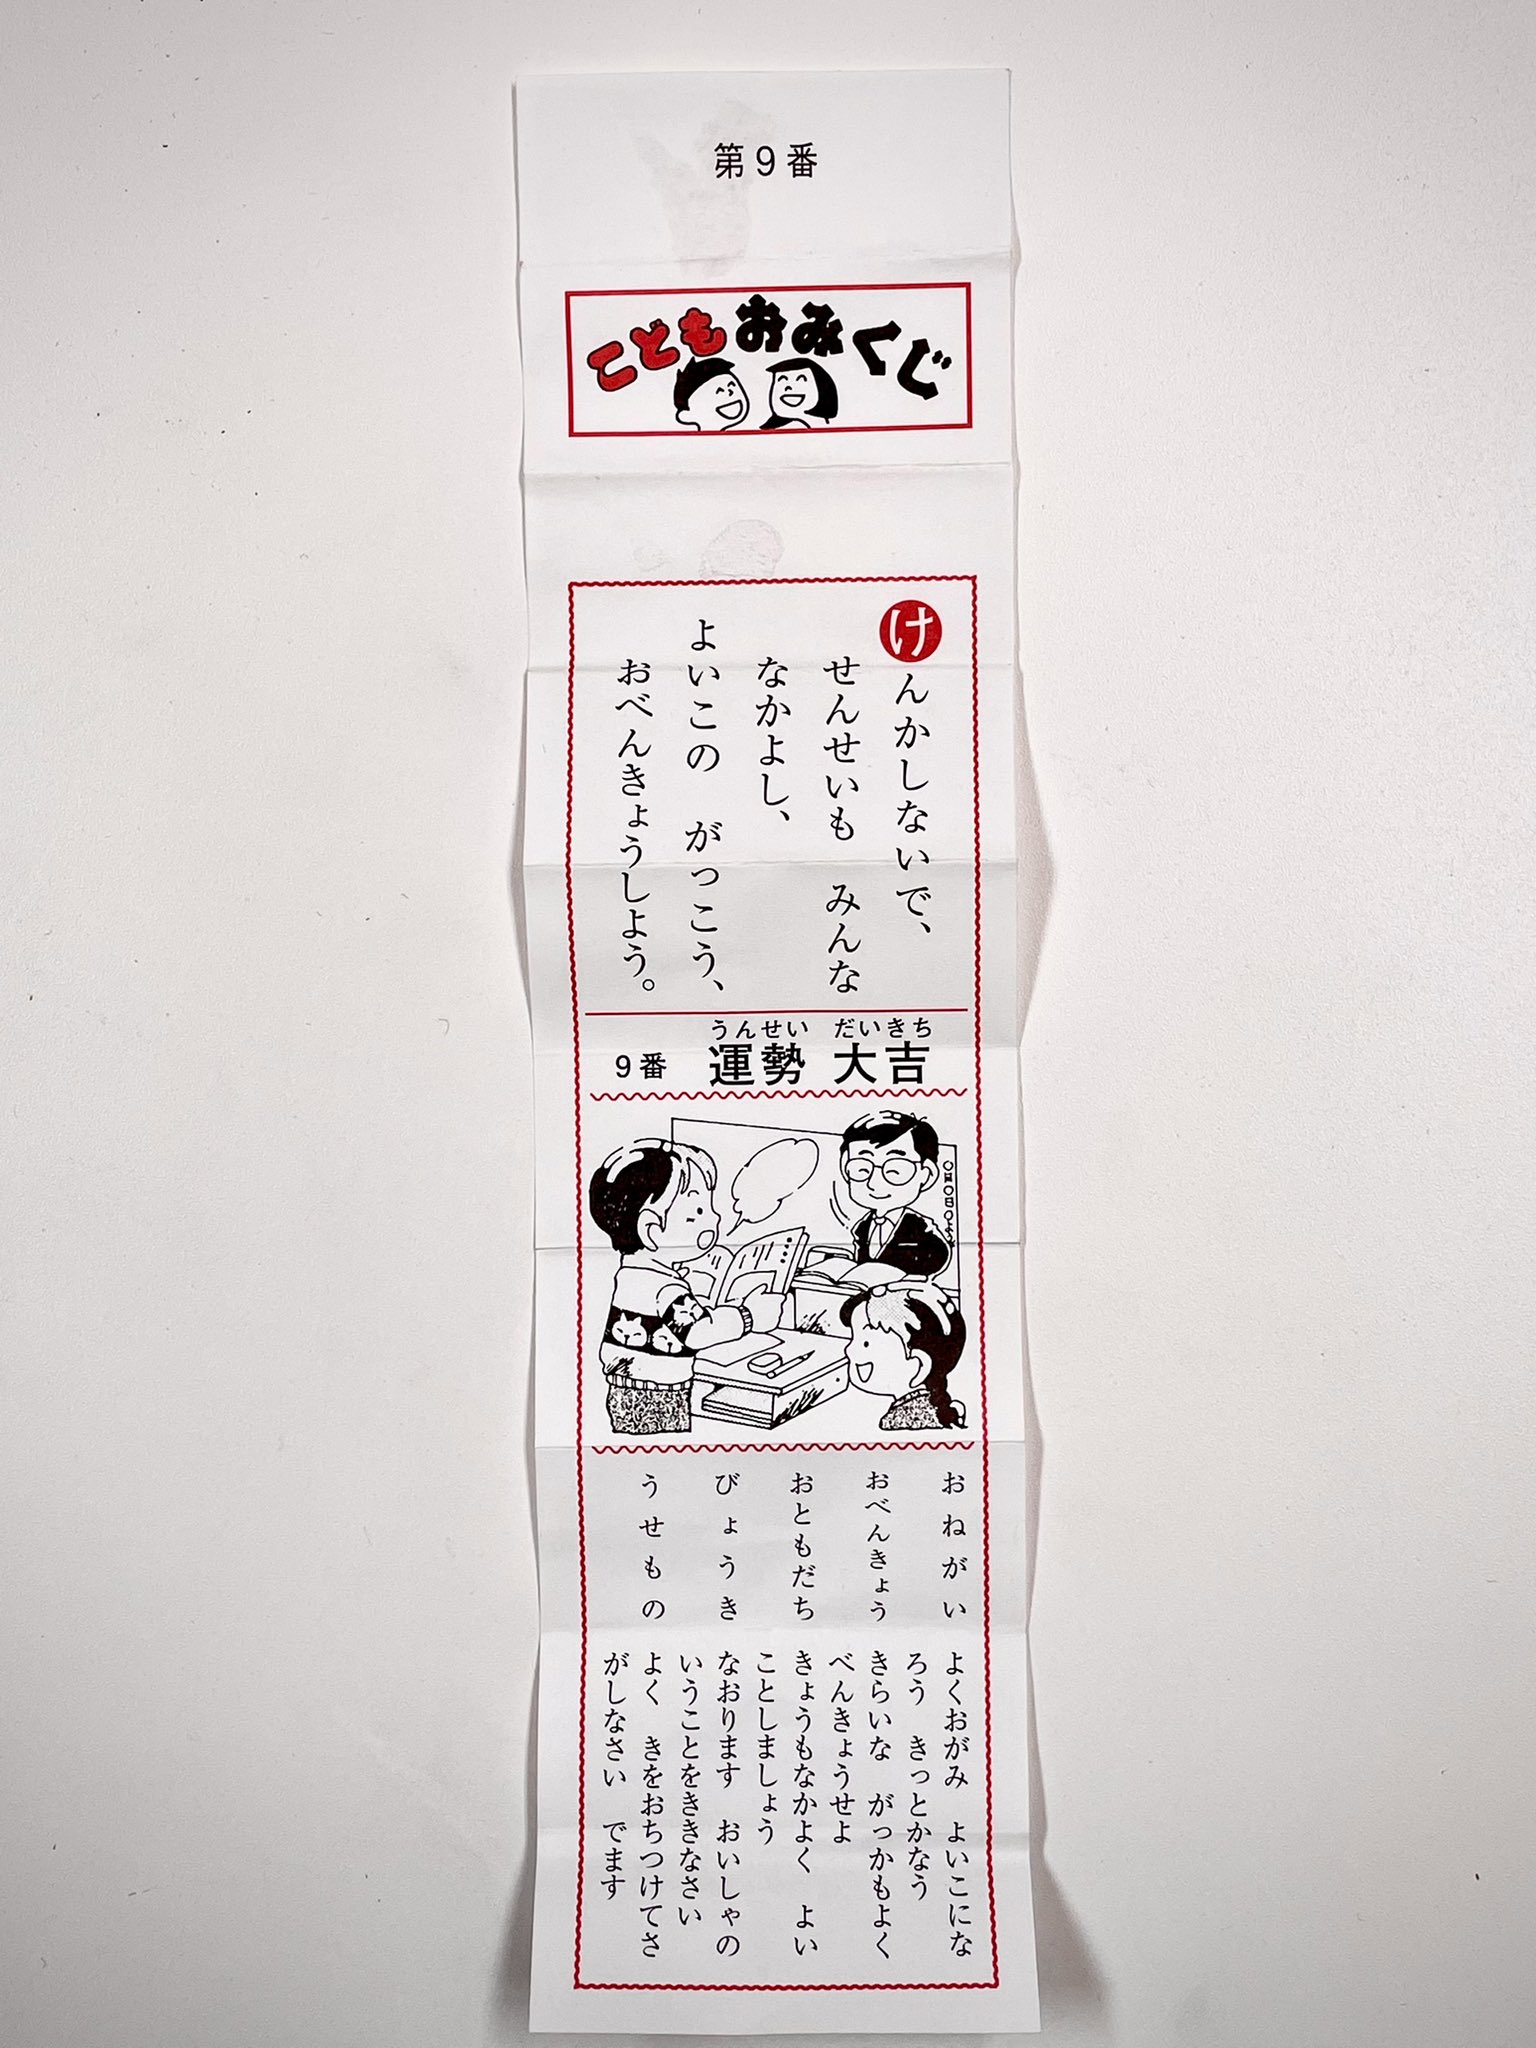 第9番
こどもおみくじ
けんかしないで、
せんせいも　みんな
なかよし、
よいこの　がっこう、
おべんきょうしよう。
うんせい　だいきち
9番　運勢　大吉
おねがい
よくおがみ　よいこにな
ろう　きっとかなう
おべんきょう
きらいな　がっかもよく
べんきょうせよ
おともだち
きょうもなかよく　よい
ことしましょう
びょうき
なおります　おいしゃの
いうことをききなさい
うせもの
よく　きをおちつけてさ
がしなさい　でます